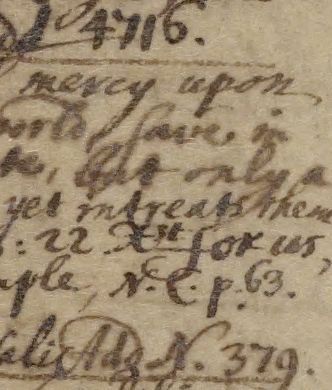 4716.
mercy upon
world, save in
te, but only a
yet intreats them
: 22 Xst for us,
mple, N. C. p. 63.
Ado N. 379.